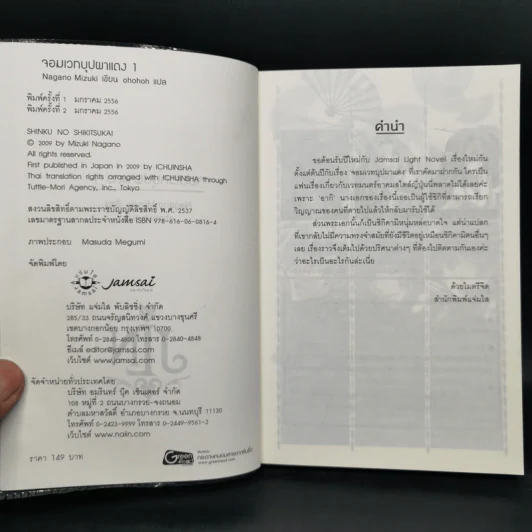 จอมเวทบุปผาแดง 1
Nagano Mizuki เขียน ohohoh แปล
พิมพ์ครั้งที่ 1 มกราคม 2556
พิมพ์ครั้งที่ 2 มกราคม 2556
SHINKU NO SHIKITSUKAI
© 2009 by Mizuki Nagano
All rights reserved.
First published in Japan in 2009 by ICHIJINSHA
Thai translation rights arranged with ICHIJINSHA through
Tuttle-Mori Agency, Inc., Tokyo
สงวนลิขสิทธิ์ตามพระราชบัญญัติลิขสิทธิ์ พ.ศ. 2537
เลขมาตรฐานสากลประจำหนังสือ ISBN 978-616-06-0816-4
ภาพประกอบ Masuda Megumi
จัดพิมพ์โดย
jamsai
บริษัท แจ่มใส พับลิชชิ่ง จำกัด
285/33 ถนนจรัญสนิทวงศ์ แขวงบางขุนศรี
เขตบางกอกน้อย กรุงเทพฯ 10700
โทรศัพท์ 0-2840-4800 โทรสาร 0-2840-4848
อีเมล์ editor@jamsai.com
เว็บไซต์ www.jamsai.com
จัดจำหน่ายทั่วประเทศโดย
บริษัท อมรินทร์ บุ๊ค เซ็นเตอร์ จำกัด
108 หมู่ที่ 2 ถนนบางกรวย-จงถนอม
ตำบลมหาสวัสดิ์ อำเภอบางกรวย จ.นนทบุรี 11130
โทรศัพท์ 0-2423-9999 โทรสาร 0-2449-9561-2
เว็บไซต์ www.naiin.com
ราคา 149 บาท
Green
www.greenread.com
คำนำ
ขอต้อนรับปีใหม่กับ Jamsai Light Novel เรื่องใหม่กัน
ตั้งแต่ต้นปีกับเรื่อง 'จอมเวทบุปผาแดง' ที่เราคัดมาฝากกัน ใครเป็น
แฟนเรื่องเกี่ยวกับเวทมนตร์อาคมสไตล์ญี่ปุ่นนี่พลาดไม่ได้เลยค่ะ
เพราะ 'อากิ' นางเอกของเรื่องนี้เธอเป็นผู้ใช้ชิกิที่สามารถเรียก
วิญญาณของคนที่ตายไปแล้วให้กลับมารับใช้ได้
ส่วนพระเอกนั้นก็เป็นชิกิตามีหนุ่มหล่อบาดใจ แต่น่าแปลก
ที่เขากลับไม่มีความทรงจำสมัยที่ยังมีชีวิตอยู่เหมือนชิกิตามีตนอื่นๆ
เลย เรื่องราวจึงเต็มไปด้วยปริศนาต่างๆ ที่ต้องไปติดตามกันเองค่ะ
ว่าอะไรเป็นอะไรกันล่ะเนี่ย
ด้วยไมตรีจิต
สำนักพิมพ์แจ่มใส